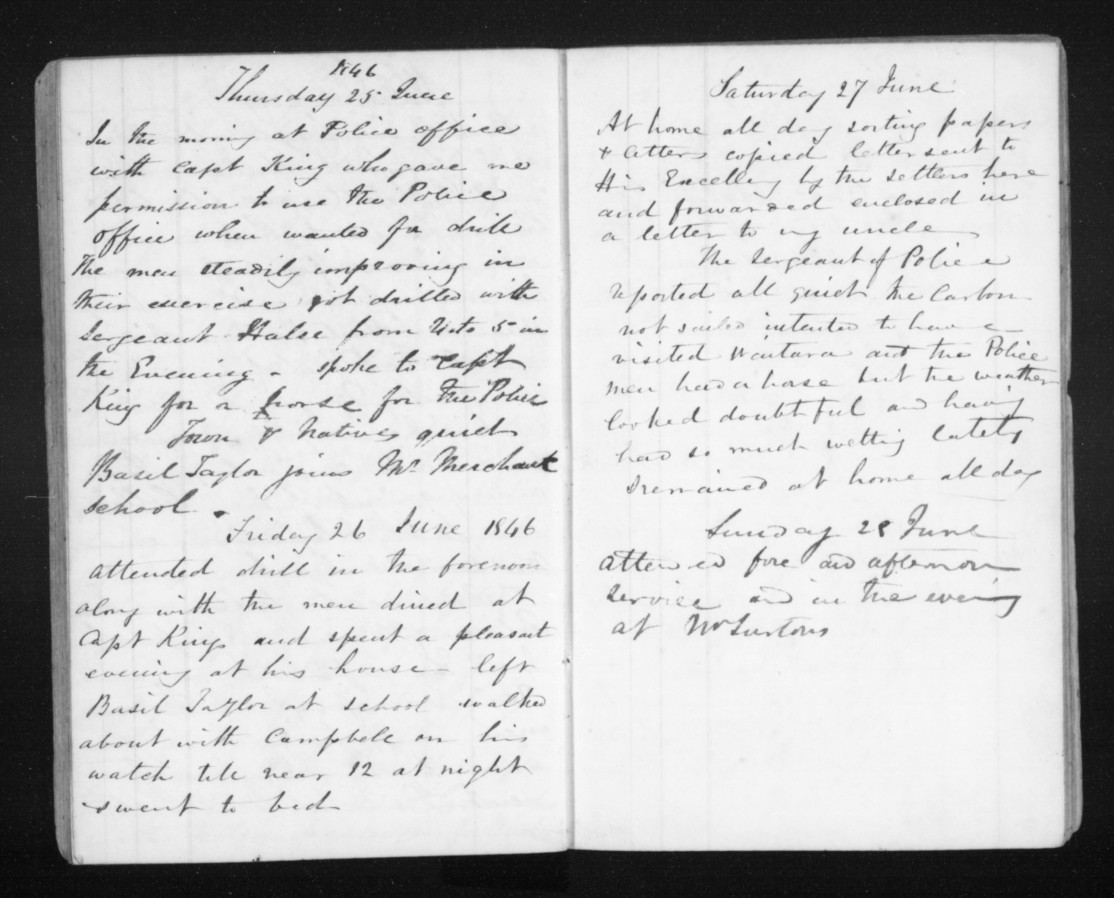 1846
Thursday 25 June
In the morning at Police office
with Capt King who gave me
permission to use the Police
office when wanted for drill
The men steadily improving in
their exercise got drilled with
Sergeant Halse from 4 to 5 in
the Evening - spoke to Capt
King for a horse for the Police
Town & Natives quiet
Basil Taylor joins Mr Merchant
school.
Friday 26 June 1846
attended drill in the forenoon
along with the men dined at
Capt Kings and spent a pleasant
evening at his house - left
Basil Taylor at school walked
about with Campbell on his
watch till near 12 at night
& went to bed
Saturday 27 June
At home all day sorting papers
& letters copied letter sent to
His Excellency by the settlers here
and forwarded enclosed in
a letter to my uncle
The Sergeant of Police
reported all quiet the Carbon
not sailed intended to have
visited Waitara and the Police
men had a horse but the weather
looked doubtful and having
had so much wetting lately
I remained at home all day
Sunday 28 June
attended fore and afternoon
service and in the evening
at Mr Turtons